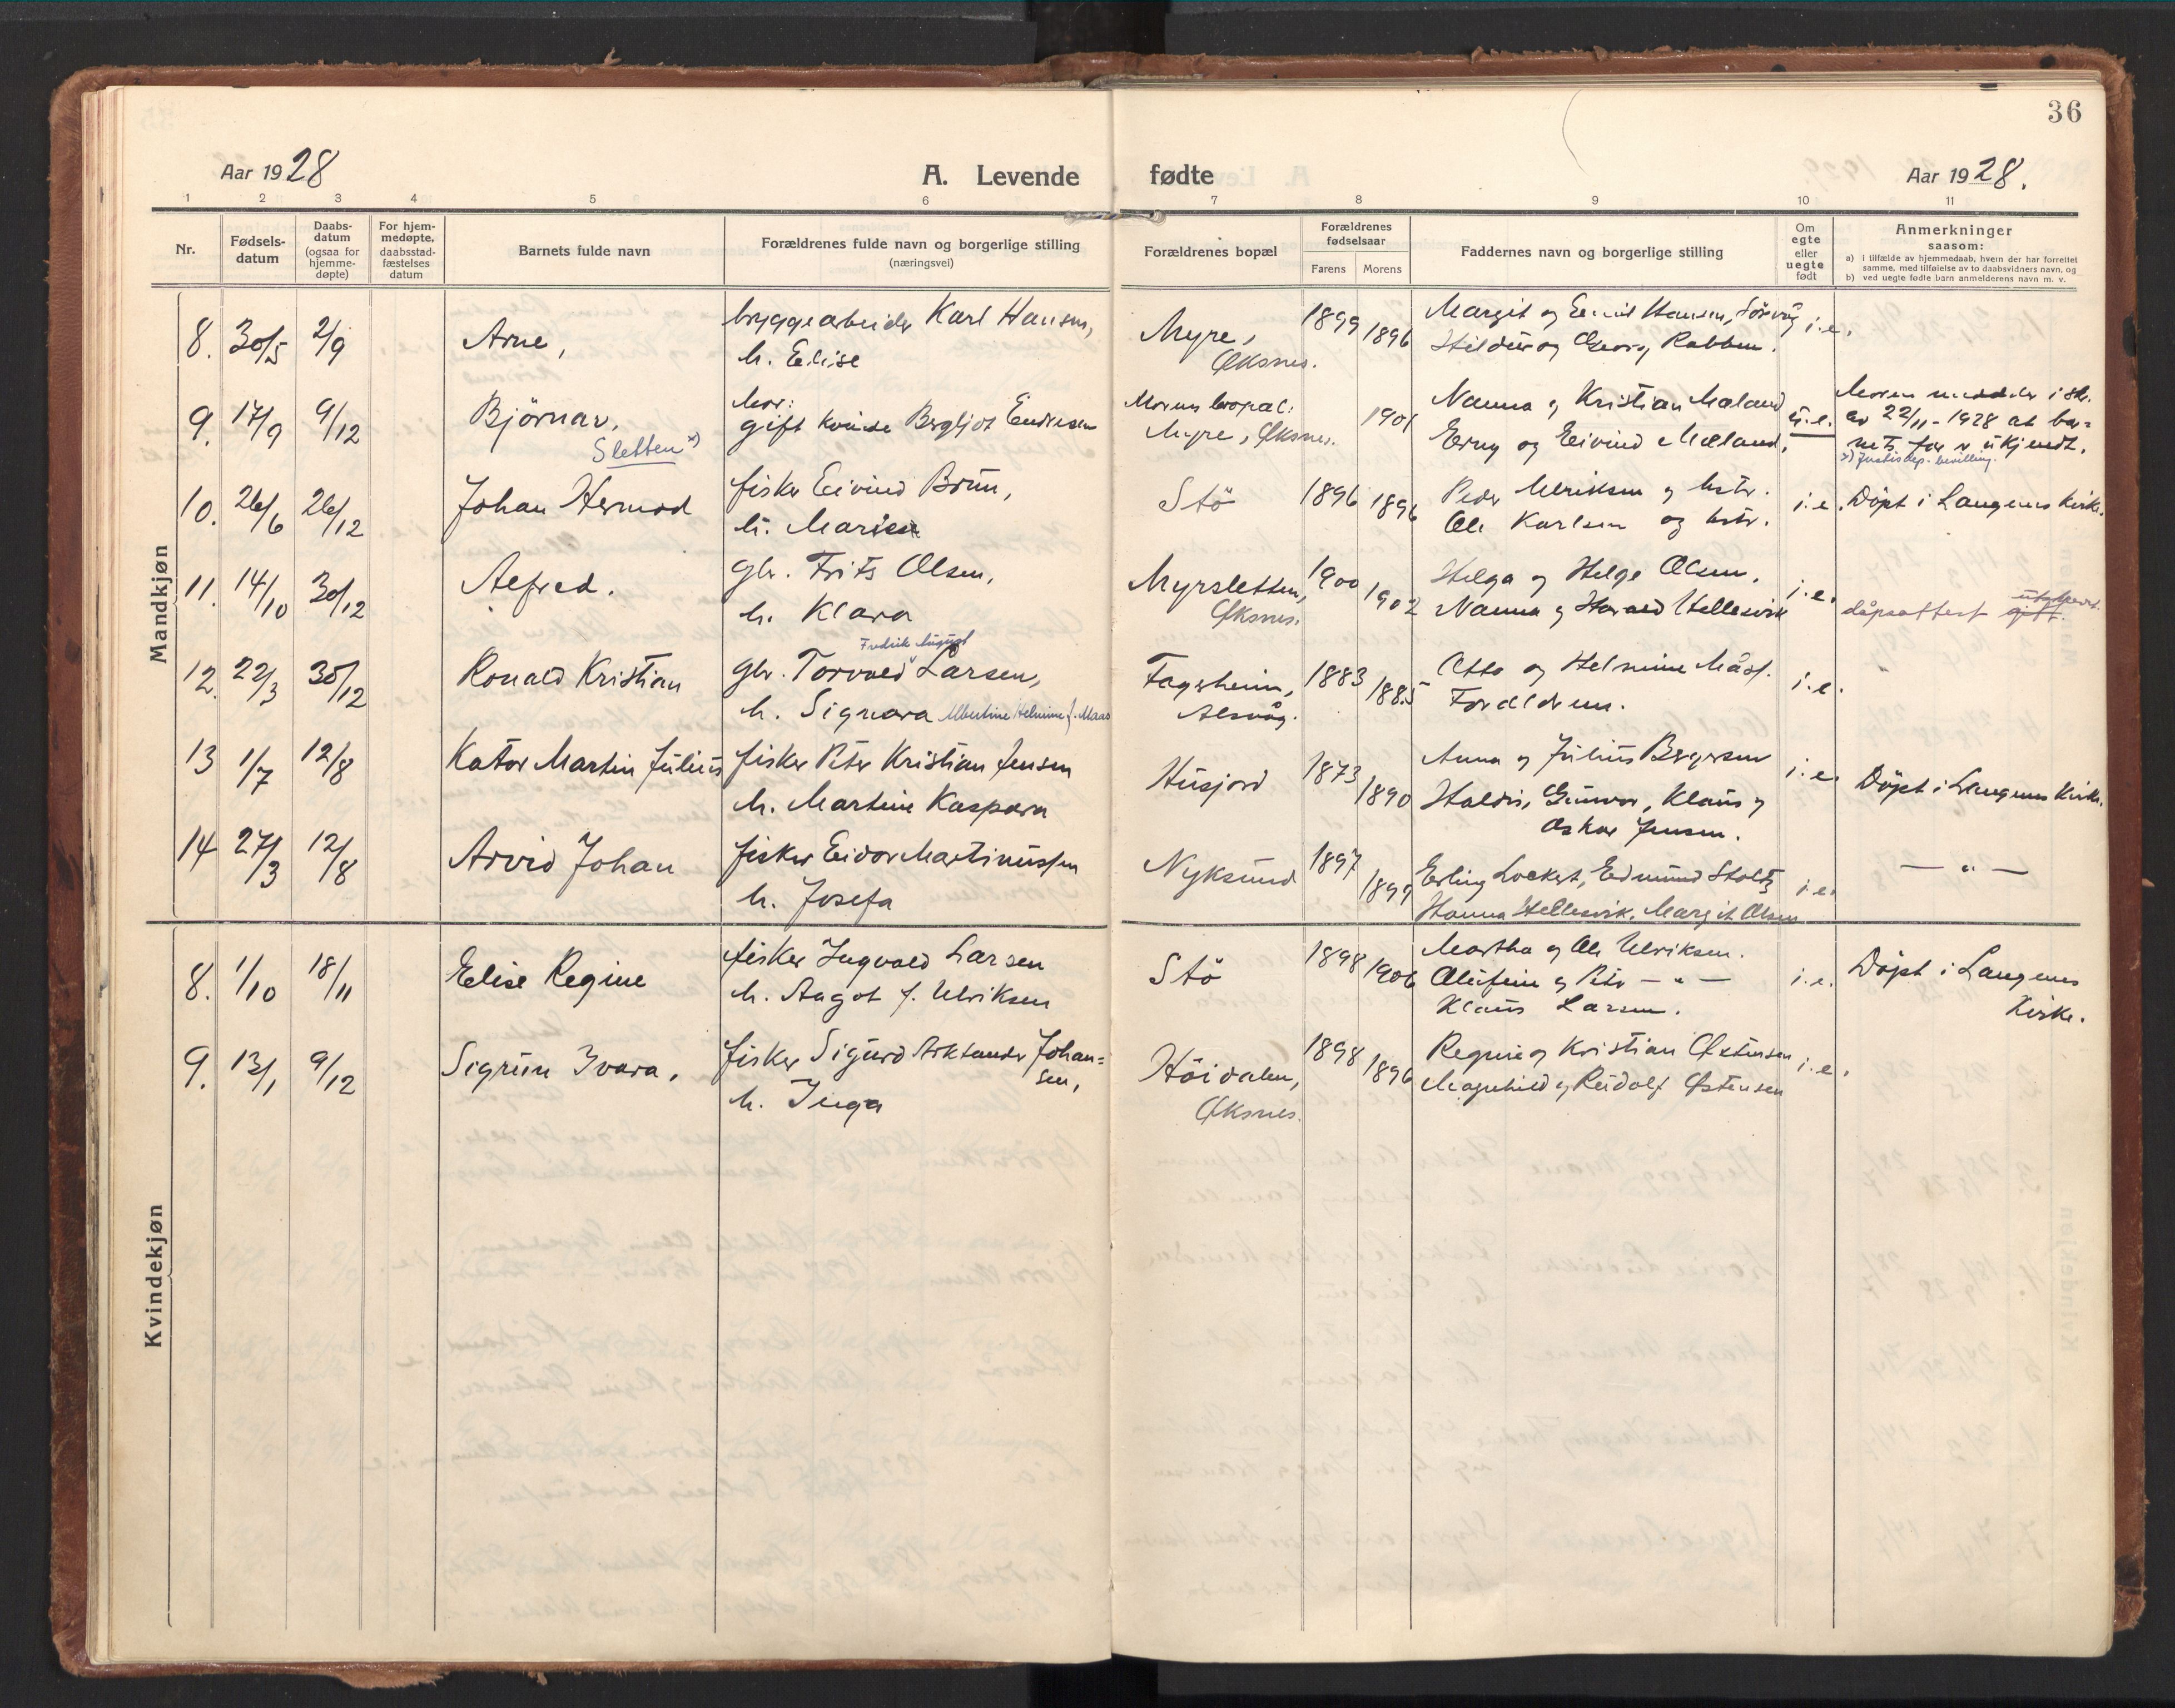 36
Aar 1928
A. Levende fødte
Aar 1928.
1 2 3 4 5 6 7 8 9 10 11
Nr.
Fødsels-
datum
Daabs-
datum
(ogsaa for
hjemme-
døpte)
For hjem-
medøpte,
daabsstad-
fæstelses
datum
Barnets fulde navn
Forældrenes fulde navn og borgerlige stilling
(næringsvei)
Forældrenes bopæl
Forældrenes
fødselsaar
Farens Morens
Faddernes navn og borgerlige stilling
Om
egte
eller
uegte
født
Anmerkninger
saasom:
a) i tilfælde av hjemmedaab, hvem der har forrettet
samme, med tilføielse av to daabsvidners navn, og
b) ved uegte fødte barn anmelderens navn m. v.
Mandkjøn
8. 30/5 2/9 Arne, bryggearbeider Karl Hansen,
h. Elise
Myre,
Øksnes.
1899 1896
Margit og Hansen,
og Georg Robben.
i.e.
9. 17/9 9/12 Björnar,
Sletten x)
Mor:
gift kvinde Bergljot Endresen
Morens bopæl:
Myre, Øksnes.
1901
Nanna og Kristian Mæland
Erny og Eivind Mæland.
u.e.
Moren meddeler i skr.
av 22/11-1928 at bar-
nets far er ukjendt.
x) Justisdep. bevilling.
10. 26/6 26/12 Johan Hermod fisker Eivind Brun,
h. Marie
Stö
1896 1896
Peder Ulriksen og hstr.
Ole Karlsen og hstr.
i.e.
Döpt i Langenes Kirke.
11. 14/10 30/12 Alfred. gbr. Frits Olsen,
h. Klara
Myrsletten,
Øksnes.
1900 1902
Helga og Helge Olsen.
Nanna og Harald Hellesvik
i.e.
dåpsattest
12. 22/3 30/12 Ronald Kristian gbr. Torvald Larsen,
Fredrik August
h. Signora Albertine Helmine f. Maas
Fagerheim,
Alsvåg.
1883 1885
Otto og Helmine Mås.
Foreldrene.
i.e.
13 1/7 12/8 Kator Martin Julius fisker Peter Kristian Jensen
h. Martine Kaspara
Husjord
1873 1890
Anna og Julius Bergersen
Haldis, Gunvor, Klaus og
Oskar Jensen.
i.e.
Döpt i Langenes Kirke.
14 27/3 12/8 Arvid Johan fisker Eidor Martinussen
h. Josefa
Nyksund
1897 1899
Erling Lockert, Edmund Stoltz
Hanna Hellesvik, Margit Olsen
i.e.
— " —
Kvindekjøn
8. 1/10 18/11 Elise Regine fisker Ingvald Larsen
h. Aagot f. Ulriksen
Stö
1898 1906
Martha og Ole Ulriksen.
Olufine og Peter — " —
Klaus Larsen.
i.e.
Döpt i Langenes
Kirke.
9. 13/1 9/12 Sigrun Ivara, fisker Sigurd Arktander Johan=
sen,
h. Inga
Höidalen,
Øksnes.
1898 1896
Regine og Kristian Østensen
Magnhild og Rudolf Østensen
i.e.